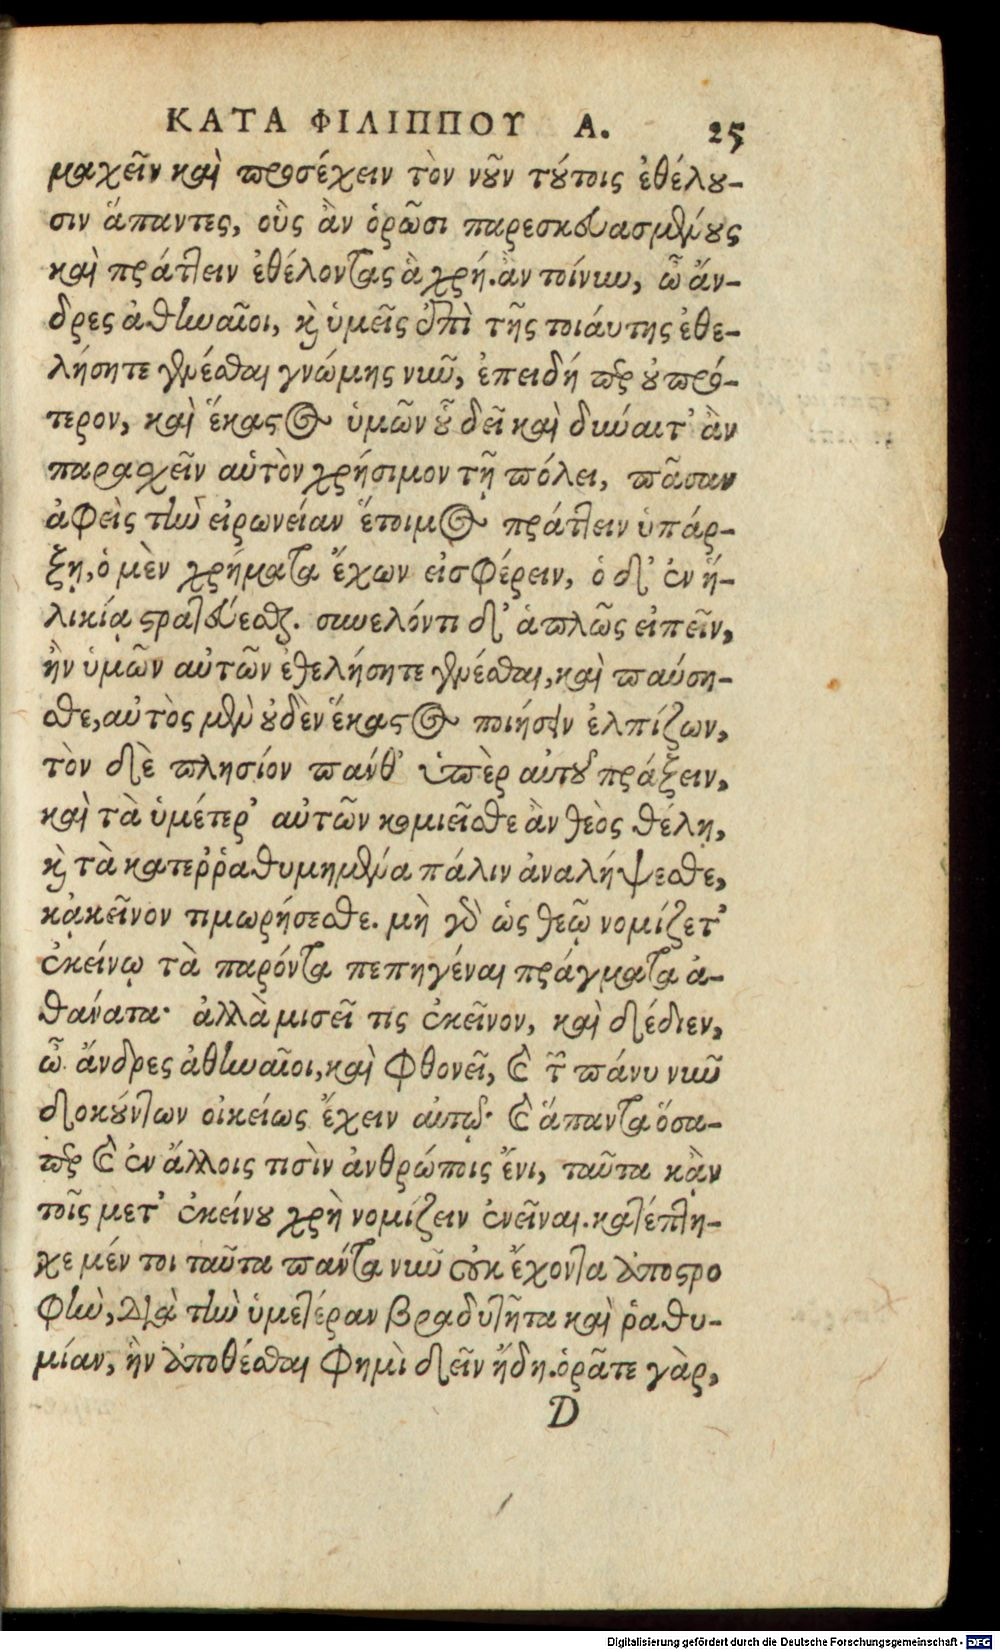 ΚΑΤΑ ΦΙΛΙΠΠΟΥ Α. 25
μαχεῖν καὶ προσέχειν τὸν νοῦν τούτοις ἐθέλου-
σιν ἅπαντες, οὓς ἂν ὁρῶσι παρεσκευασμένους
καὶ πράττειν ἐθέλοντας ἃ χρή. ἂν τοίνυν, ὦ ἄν-
δρες ἀθηναῖοι, καὶ ὑμεῖς ἐπὶ τῆς τοιάυτης ἐθε-
λήσητε γενέσθαι γνώμης νῦν, ἐπειδή περ οὐ πρό-
τερον, καὶ ἕκαστος ὑμῶν οὗ δεῖ καὶ δύναιτ᾽ ἂν
παρασχεῖν αὑτὸν χρήσιμον τῇ πόλει, πᾶσαν
ἀφεὶς τὴν εἰρωνείαν ἕτοιμος πράττειν ὑπάρ-
ξῃ, ὁ μὲν χρήματα ἔχων εἰσφέρειν, ὁ δ᾽ ἐν ἡ-
λικίᾳ στρατεύεσθαι. συνελόντι δ᾽ ἁπλῶς εἰπεῖν,
ἢν ὑμῶν αὐτῶν ἐθελήσητε γενέσθαι, καὶ παύση-
σθε, αὐτὸς μὲν οὐδὲν ἕκαστος ποιήσειν ἐλπίζων,
τὸν δὲ πλησίον πάνθ᾽ ὑπὲρ αὑτοῦ πράξειν,
καὶ τὰ ὑμέτερ᾽ αὐτῶν κομιεῖσθε ἂν θεὸς θέλῃ,
καὶ τὰ κατεῤῥαθυμημένα πάλιν ἀναλήψεσθε,
κᾀκεῖνον τιμωρήσεσθε. μὴ γὰρ ὡς θεῷ νομίζετ᾽
ἐκείνῳ τὰ παρόντα πεπηγέναι πράγματα ἀ-
θάνατα· ἀλλὰ μισεῖ τις ἐκεῖνον, καὶ δέδιεν,
ὦ ἄνδρες ἀθηναῖοι, καὶ φθονεῖ, καὶ τῶν πάνυ νῦν
δοκούντων οἰκείως ἔχειν αὐτῷ· καὶ ἅπαντα ὅσα-
περ καὶ ἐν ἄλλοις τισὶν ἀνθρώποις ἔνι, ταῦτα κᾂν
τοῖς μετ᾽ ἐκείνου χρὴ νομίζειν ἐνεῖναι. κατέπτη-
χε μέν τοι ταῦτα πάντα νῦν οὐκ ἔχοντα ἀποστρο
φὴν, διὰ τὴν ὑμετέραν βραδυτῆτα καὶ ῥαθυ-
μίαν, ἣν ἀποθέσθαι φημὶ δεῖν ἤδη. ὁρᾶτε γὰρ,
D
Digitalisierung gefördert durch die Deutsche Forschungsgemeinschaft - DFG